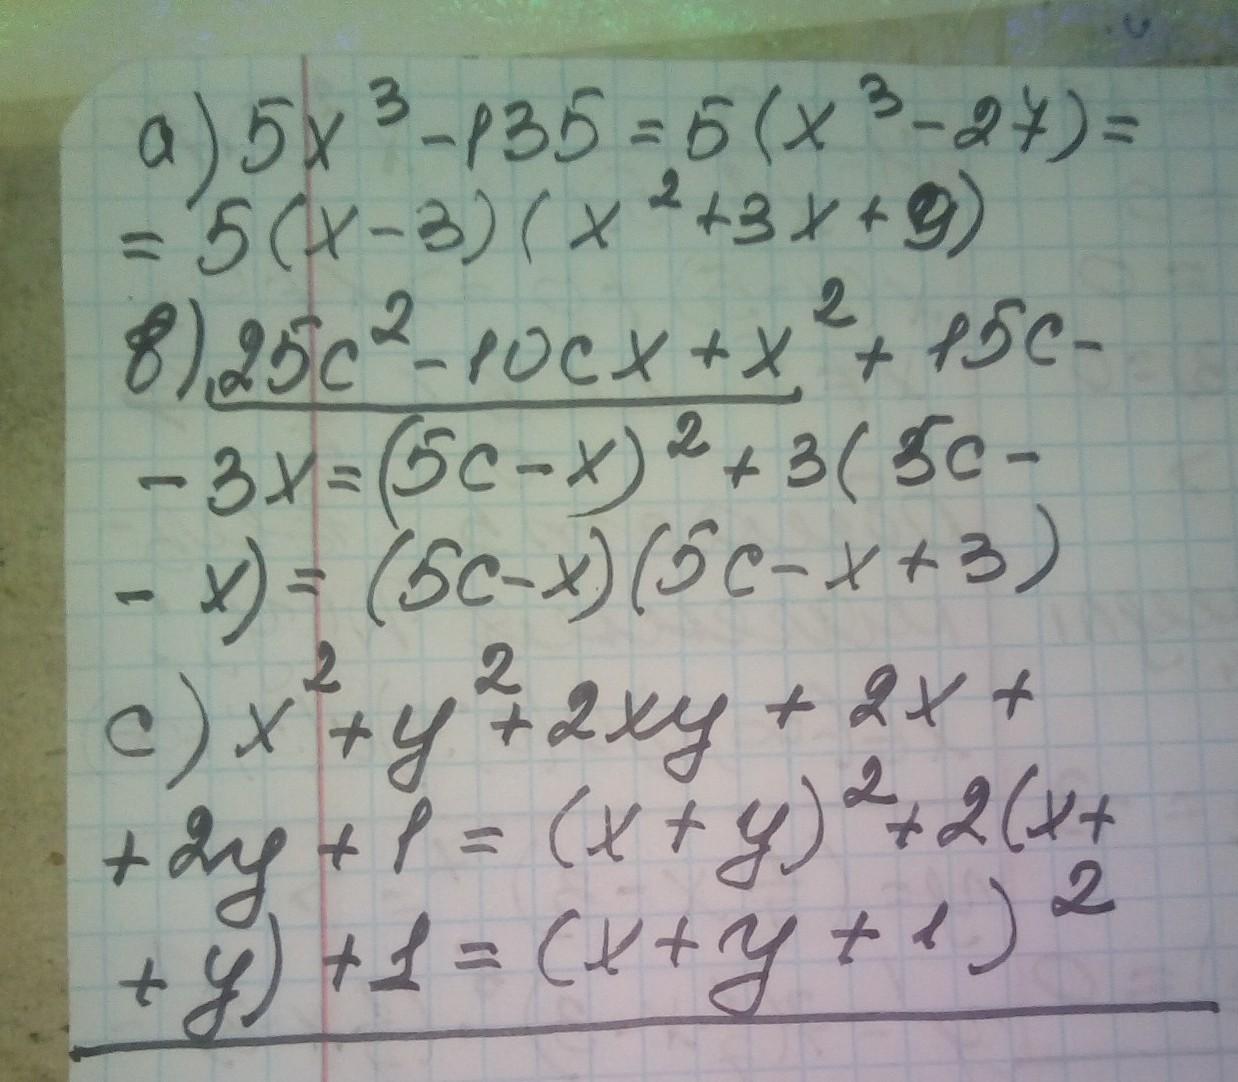 а) 5x³ - 135 = 5(x³ - 27) =
= 5(x - 3)(x² + 3x + 9)
в) 25c² - 10cx + x² + 15c -
- 3x = (5c - x)² + 3(5c -
- x) = (5c - x)(5c - x + 3)
c) x² + y² + 2xy + 2x +
+ 2y + 1 = (x + y)² + 2(x +
+ y) + 1 = (x + y + 1)²